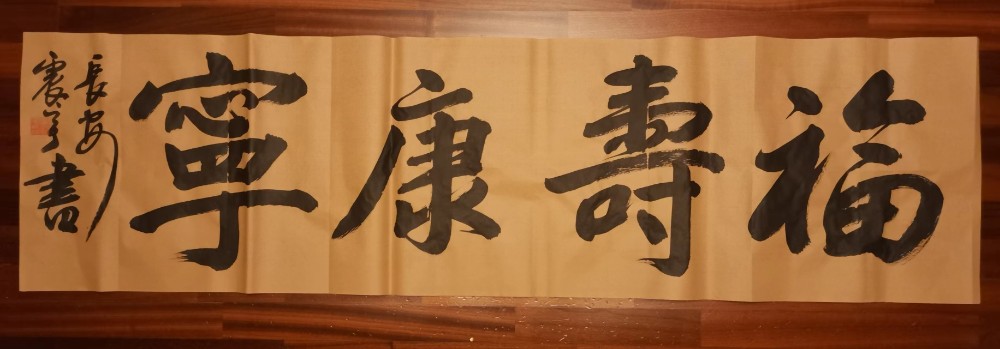 福壽康寧
長安
震〇書